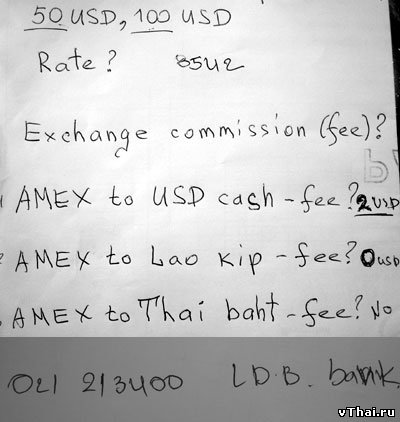 50 USD, 100 USD
Rate? 8542
Exchange commission (fee)?
AMEX to USD cash - fee? 2 USD
AMEX to Lao kip - fee? 0 USD
AMEX to Thai baht - fee? No
021 213400 L.D.B. bank
vThai.ru